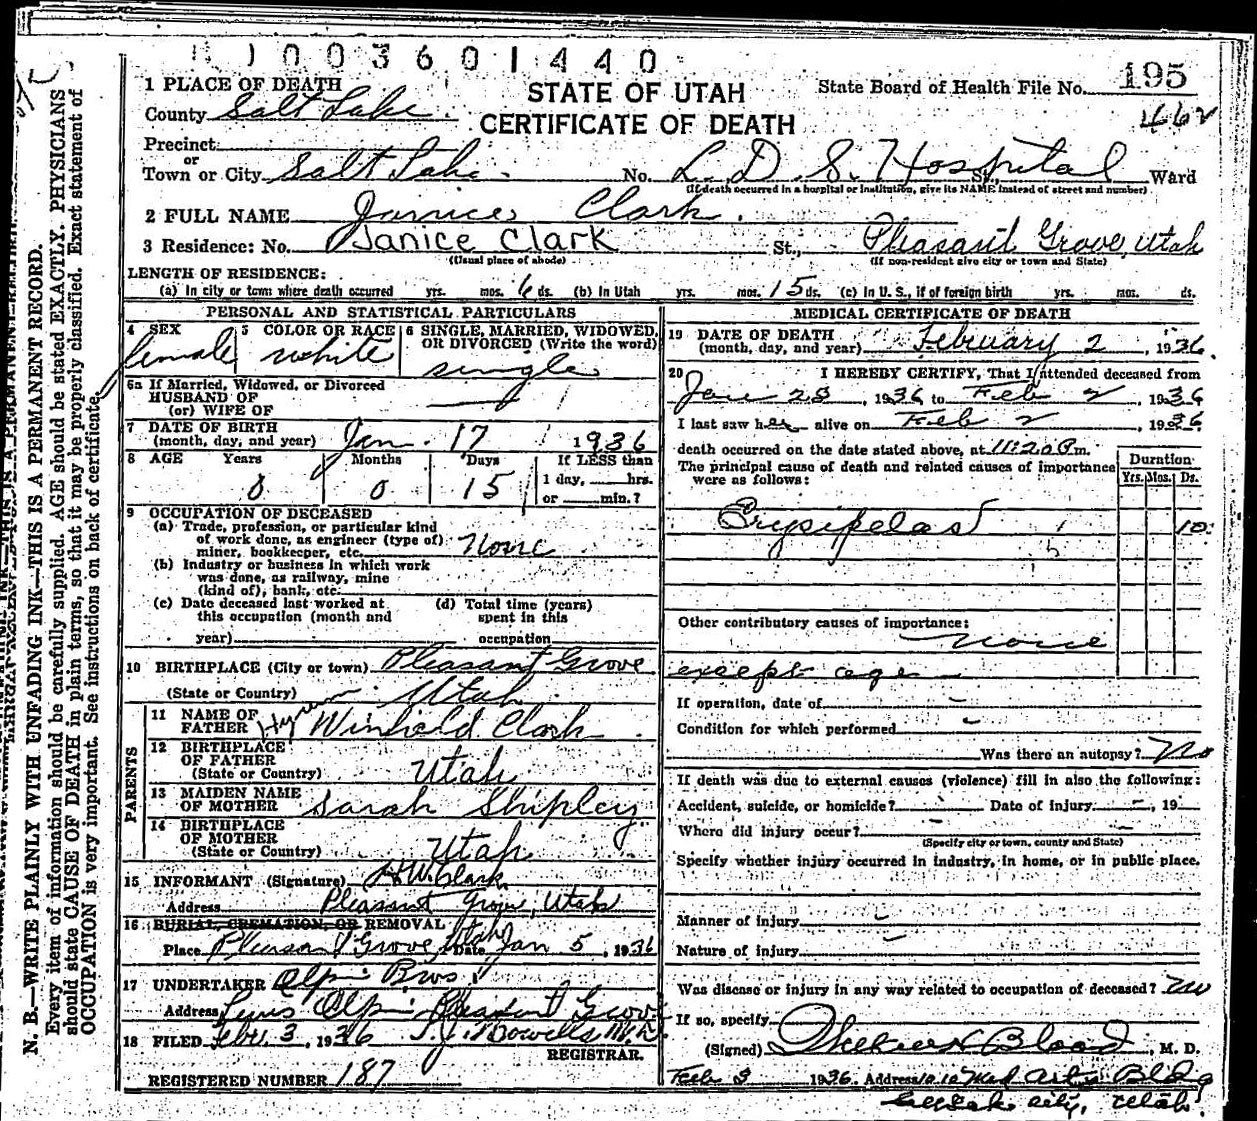 1003601440
1 PLACE OF DEATH
STATE OF UTAH
State Board of Health File No. 195
County Salt Lake.
CERTIFICATE OF DEATH
462
Precinct
or
Town or City Salt Lake. No. L. D. S. Hospital St., Ward
(If death occurred in a hospital or institution, give its NAME instead of street and number)
2 FULL NAME Janice Clark.
3 Residence: No. Janice Clark St., Pleasant Grove, Utah
(Usual place of abode) (If non-resident give city or town and State)
LENGTH OF RESIDENCE:
(a) In city or town where death occurred yrs. mos. 6 ds. (b) In Utah yrs. mos. 15 ds. (c) In U. S., if of foreign birth yrs. mos. ds.
PERSONAL AND STATISTICAL PARTICULARS
4 SEX female
5 COLOR OR RACE white
6 SINGLE, MARRIED, WIDOWED, OR DIVORCED (Write the word) single
6a If Married, Widowed, or Divorced
HUSBAND OF
(or) WIFE OF
7 DATE OF BIRTH
(month, day, and year) Jan. 17 1936
8 AGE Years Months Days If LESS than
0 0 15 1 day, hrs.
or min.?
9 OCCUPATION OF DECEASED
(a) Trade, profession, or particular kind
of work done, as engineer (type of)
miner, bookkeeper, etc. None
(b) Industry or business in which work
was done, as railway, mine
(kind of), bank, etc.
(c) Date deceased last worked at
this occupation (month and
year)
(d) Total time (years)
spent in this
occupation
10 BIRTHPLACE (City or town) Pleasant Grove
(State or Country) Utah
PARENTS
11 NAME OF
FATHER Hyrum Winfield Clark
12 BIRTHPLACE
OF FATHER
(State or Country) Utah
13 MAIDEN NAME
OF MOTHER Sarah Shipley
14 BIRTHPLACE
OF MOTHER
(State or Country) Utah
15 INFORMANT (Signature) H.W. Clark
Address Pleasant Grove, Utah
16 BURIAL, CREMATION, OR REMOVAL
Place Pleasant Grove Utah Date Jan 5, 1936
17 UNDERTAKER Olpin Bros.
Address Olpin Pleasant Grove
18 FILED Feb. 3, 1936 M.D.
REGISTRAR.
REGISTERED NUMBER 187
MEDICAL CERTIFICATE OF DEATH
19 DATE OF DEATH
(month, day, and year) February 2, 1936.
20 I HEREBY CERTIFY, That I attended deceased from
Jan 28, 1936 to Feb 2, 1936
I last saw her alive on Feb 2, 1936.
death occurred on the date stated above, at 11:20 P m.
The principal cause of death and related causes of importance
were as follows:
Duration
Yrs. Mos. Ds.
Erysipelas 10
Other contributory causes of importance:
none
except age
If operation, date of -
Condition for which performed -
Was there an autopsy? No
If death was due to external causes (violence) fill in also the following:
Accident, suicide, or homicide? - Date of injury -, 19
Where did injury occur? -
(Specify city or town, county and State)
Specify whether injury occurred in industry, in home, or in public place.
Manner of injury -
Nature of injury -
Was disease or injury in any way related to occupation of deceased? No
If so, specify
(Signed) Blood, M. D.
Feb 3 1936. Address 1010 Med Arts Bldg
Salt Lake City, Utah.
N. B.—WRITE PLAINLY WITH UNFADING INK—THIS IS A PERMANENT RECORD.
Every item of information should be carefully supplied. AGE should be stated EXACTLY. PHYSICIANS
should state CAUSE OF DEATH in plain terms, so that it may be properly classified. Exact statement of
OCCUPATION is very important. See instructions on back of certificate.